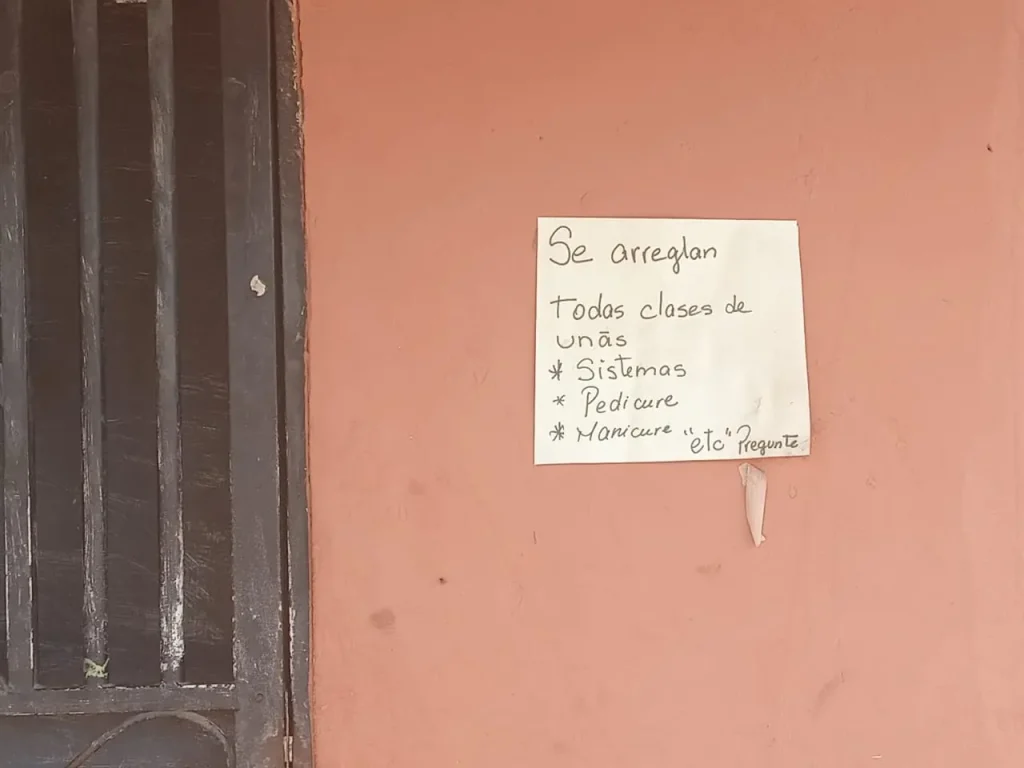 Se arreglan
Todas clases de
unās
* Sistemas
* Pedicure
* Manicure "etc" Pregunte